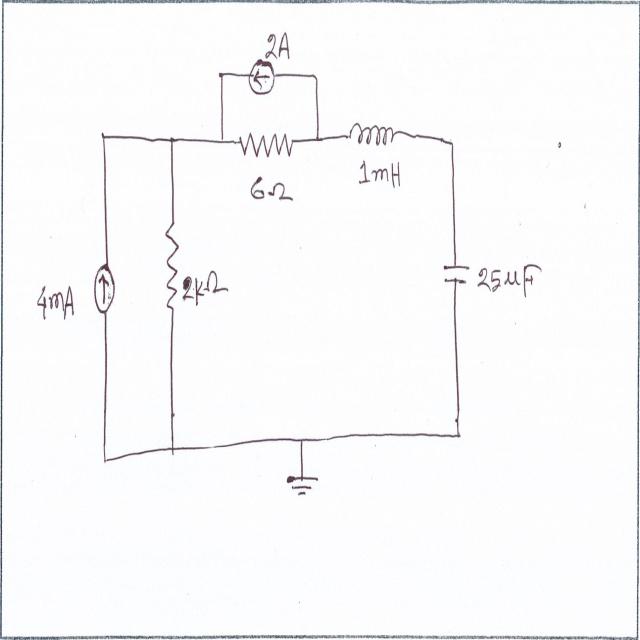 2A
6Ω
1mH
4mA
2kΩ
25μF